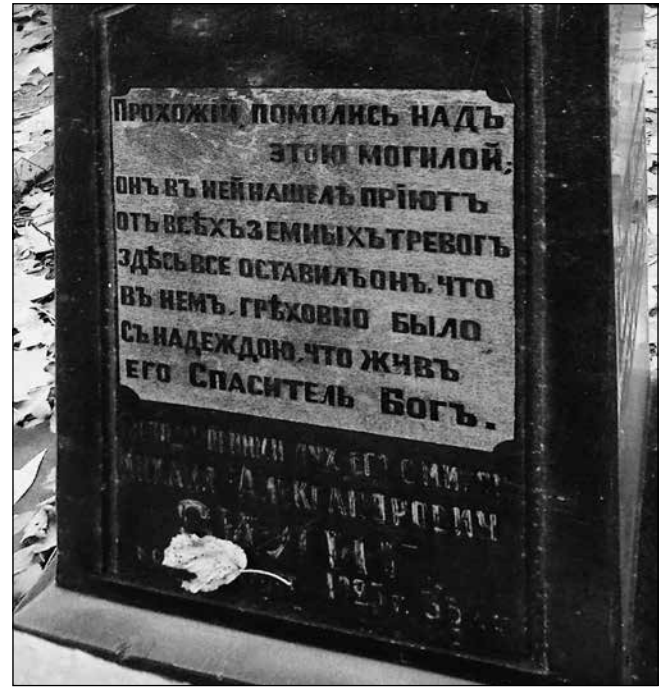 Прохожій, помолись надъ
этою могилой;
онъ въ ней нашелъ пріютъ
отъ всѣхъ земныхъ тревогъ
здѣсь все оставилъ онъ, что
въ немъ, грѣховно было
съ надеждою, что живъ
его Спаситель Богъ.
духъ его с ми
Александровичъ
35